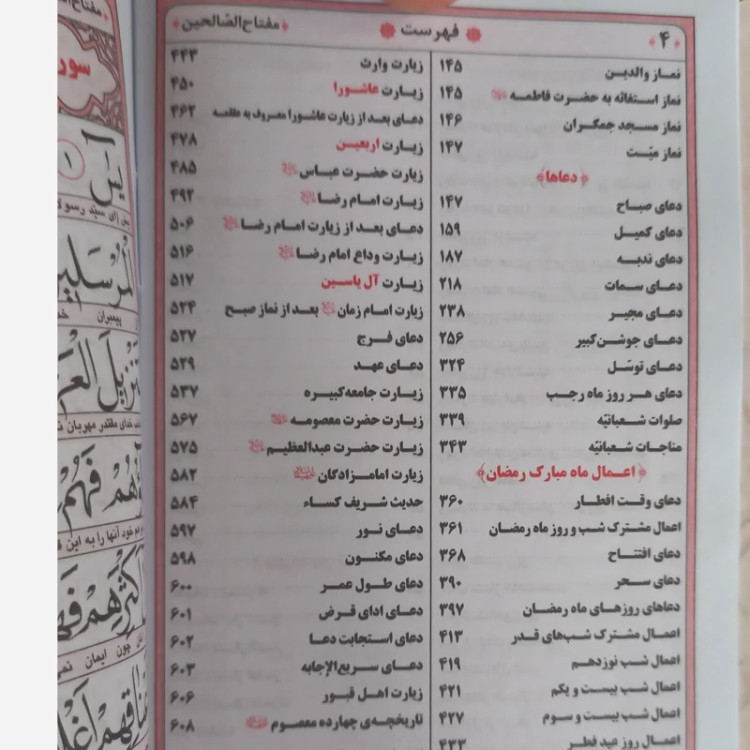 ﴿۴﴾
فهرست
﴿مفتاح‌الصّالحین﴾
نمـاز والدیـن ۱۴۵
نماز استغاثه به حضرت فاطمه ۱۴۵
نماز مسجد جمکـران ۱۴۶
نماز میّـت ۱۴۷
﴿دعاها﴾
دعای صباح ۱۴۷
دعای کمیـل ۱۵۹
دعای ندبـه ۱۸۷
دعـای سمـات ۲۱۸
دعـای مجیـر ۲۳۸
دعـای جوشـن‌کبیر ۲۵۶
دعـای توسّـل ۳۲۴
دعای هـر روز ماه رجـب ۳۳۵
صلوات شـعبانیّه ۳۳۹
مناجات شـعبانیّه ۳۴۳
﴿اعـمال ماه مبارک رمضان﴾
دعای وقـت افطـار ۳۶۰
اعمال مشترک شب و روز ماه رمضان ۳۶۱
دعای افتتـاح ۳۶۸
دعای سـحر ۳۹۰
دعاهای روزهـای ماه رمضان ۳۹۷
اعمـال مشترک شب‌های قدر ۴۱۳
اعمال شب نوزدهـم ۴۱۹
اعمال شب بیسـت و یکم ۴۲۱
اعمال شب بیسـت و سوم ۴۲۷
اعمـال روز عید فطـر ۴۳۳
زیارت وارث ۴۴۳
زیـارت عاشـورا ۴۵۰
دعای بعـد از زیارت عاشـورا معـروف به علقمـه ۴۶۲
زیارت اربعیـن ۴۷۸
زیارت حضرت عبـاس ۴۸۵
زیـارت امـام رضـا ۴۹۲
دعـای بعـد از زیارت امـام رضـا ۵۰۶
زیارت وداع امام رضـا ۵۱۶
زیـارت آل یاسـین ۵۱۷
زیارت امام زمان بعـد از نماز صبح ۵۲۴
دعای فـرج ۵۲۷
دعـای عهـد ۵۲۹
زیارت جامعه‌کبیـره ۵۳۷
زیـارت حضرت معصومـه ۵۶۷
زیـارت حضرت عبدالعظیـم ۵۷۵
زیارت امامـزادگان ۵۸۲
حدیث شـریف کسـاء ۵۸۴
دعـای نـور ۵۹۷
دعـای مکنـون ۵۹۸
دعـای طـول عمـر ۶۰۰
دعـای ادای قـرض ۶۰۱
دعـای اسـتجابت دعـا ۶۰۲
دعـای سـریع‌الإجابه ۶۰۳
زیارت اهـل قبـور ۶۰۶
تاریخچه‌ی چهارده معصـوم ۶۰۸